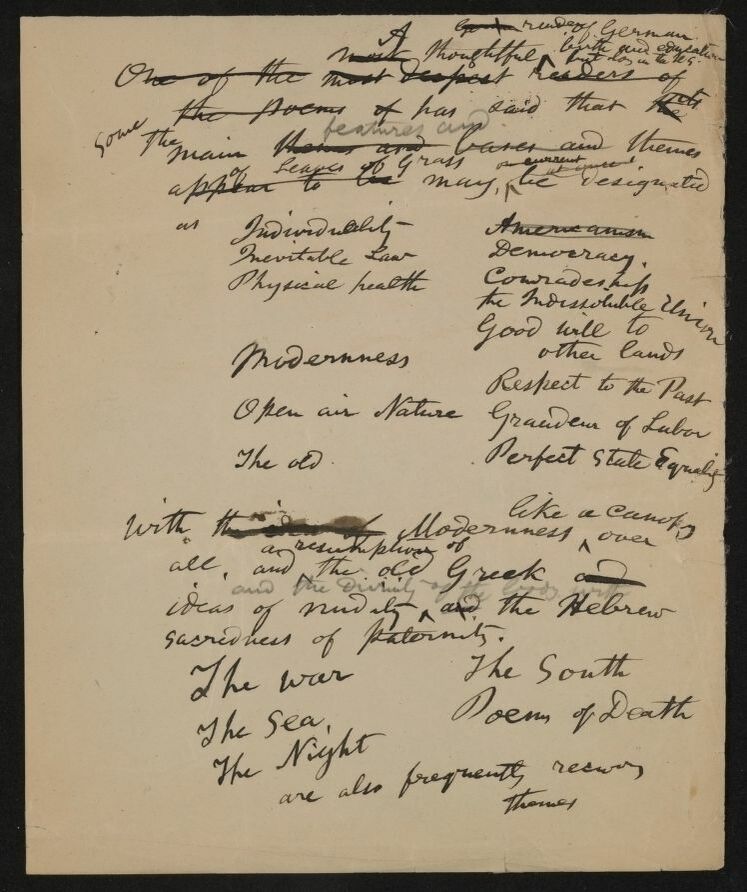 A reader of German
birth and education
but long in the US
One of the most thoughtful
most deepest readers of
the Poems of has said that the its
Some of the features and
main themes and bases and themes
of Leaves of Grass or current
appear to be may, be designated
as
Individuality
Inevitable Law
Physical health
Modernness
Open air Nature
The old
Americanism
Democracy.
Comradeship
the Indissoluble Union
Good will to
other lands
Respect to the Past
Grandeur of Labor
Perfect State Equality
like a canopy
with the idea of Modernness, over
a resumption of
all, and the old Greek and
and the divinity of the body with
ideas of nudity, and the Hebrew
sacredness of paternity.
The war
The Sea,
The Night
The South
Poems of Death
are also frequently recurring
themes